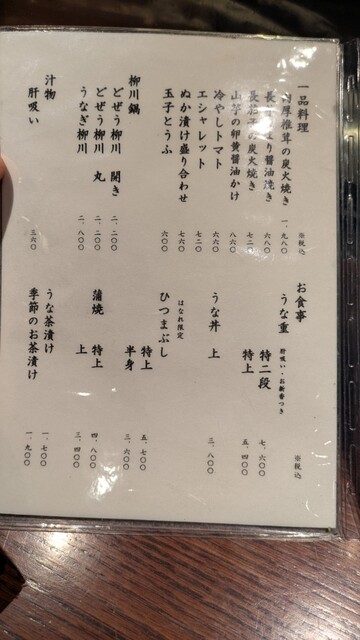 一品料理 ※税込
肉厚椎茸の炭火焼き 一、九八〇
醤油焼き 六八〇
長茄子の炭火焼き
山芋の卵黄醤油かけ 八六〇
冷やしトマト 六二〇
エシャレット 七二〇
ぬか漬け盛り合わせ 七六〇
玉子とうふ 六〇〇
柳川鍋
どぜう柳川 開き 二、二〇〇
どぜう柳川 丸 二、二〇〇
うなぎ柳川 二、八〇〇
汁物
肝吸い 三六〇
お食事 ※税込
うな重 肝吸い・お新香つき
特二段 七、六〇〇
特上 五、四〇〇
うな丼 上 三、八〇〇
はなれ限定
ひつまぶし
特上 五、七〇〇
半身 三、六〇〇
蒲焼 特上 四、八〇〇
上 三、四〇〇
うな茶漬け 一、七〇〇
季節のお茶漬け 一、九〇〇